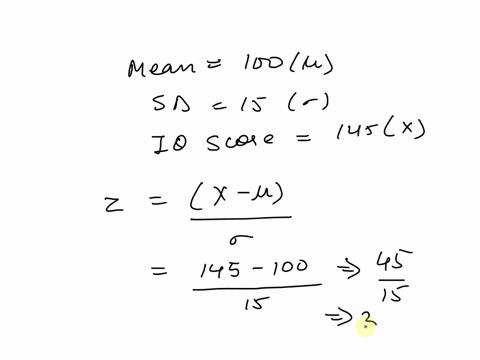 Mean = 100 (μ)
SD = 15 (σ)
IQ Score = 145 (X)
z = (X - μ)
σ
= 145 - 100 ⇒ 45
15 15
⇒